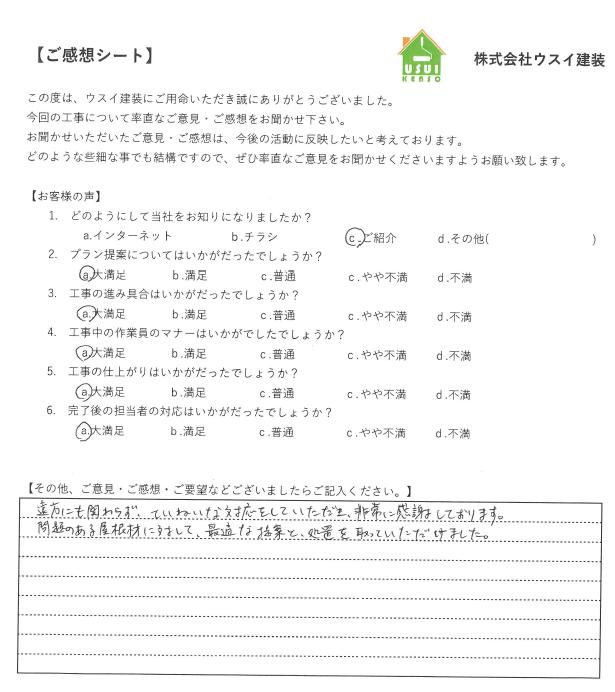 【ご感想シート】
USUI
KENSO
株式会社ウスイ建装
この度は、ウスイ建装にご用命いただき誠にありがとうございました。
今回の工事について率直なご意見・ご感想をお聞かせ下さい。
お聞かせいただいたご意見・ご感想は、今後の活動に反映したいと考えております。
どのような些細な事でも結構ですので、ぜひ率直なご意見をお聞かせくださいますようお願い致します。
【お客様の声】
1. どのようにして当社をお知りになりましたか？
a.インターネット b.チラシ c.ご紹介 d.その他( )
2. プラン提案についてはいかがだったでしょうか？
a.大満足 b.満足 c.普通 c.やや不満 d.不満
3. 工事の進み具合はいかがだったでしょうか？
a.大満足 b.満足 c.普通 c.やや不満 d.不満
4. 工事中の作業員のマナーはいかがでしたでしょうか？
a.大満足 b.満足 c.普通 c.やや不満 d.不満
5. 工事の仕上がりはいかがだったでしょうか？
a.大満足 b.満足 c.普通 c.やや不満 d.不満
6. 完了後の担当者の対応はいかがだったでしょうか？
a.大満足 b.満足 c.普通 c.やや不満 d.不満
【その他、ご意見・ご感想・ご要望などございましたらご記入ください。】
遠方にも関わらず、ていねいな対応をしていただき、非常に感謝しております。
問題のある屋根材にうまして、最適な提案と、処置を取っていただけました。